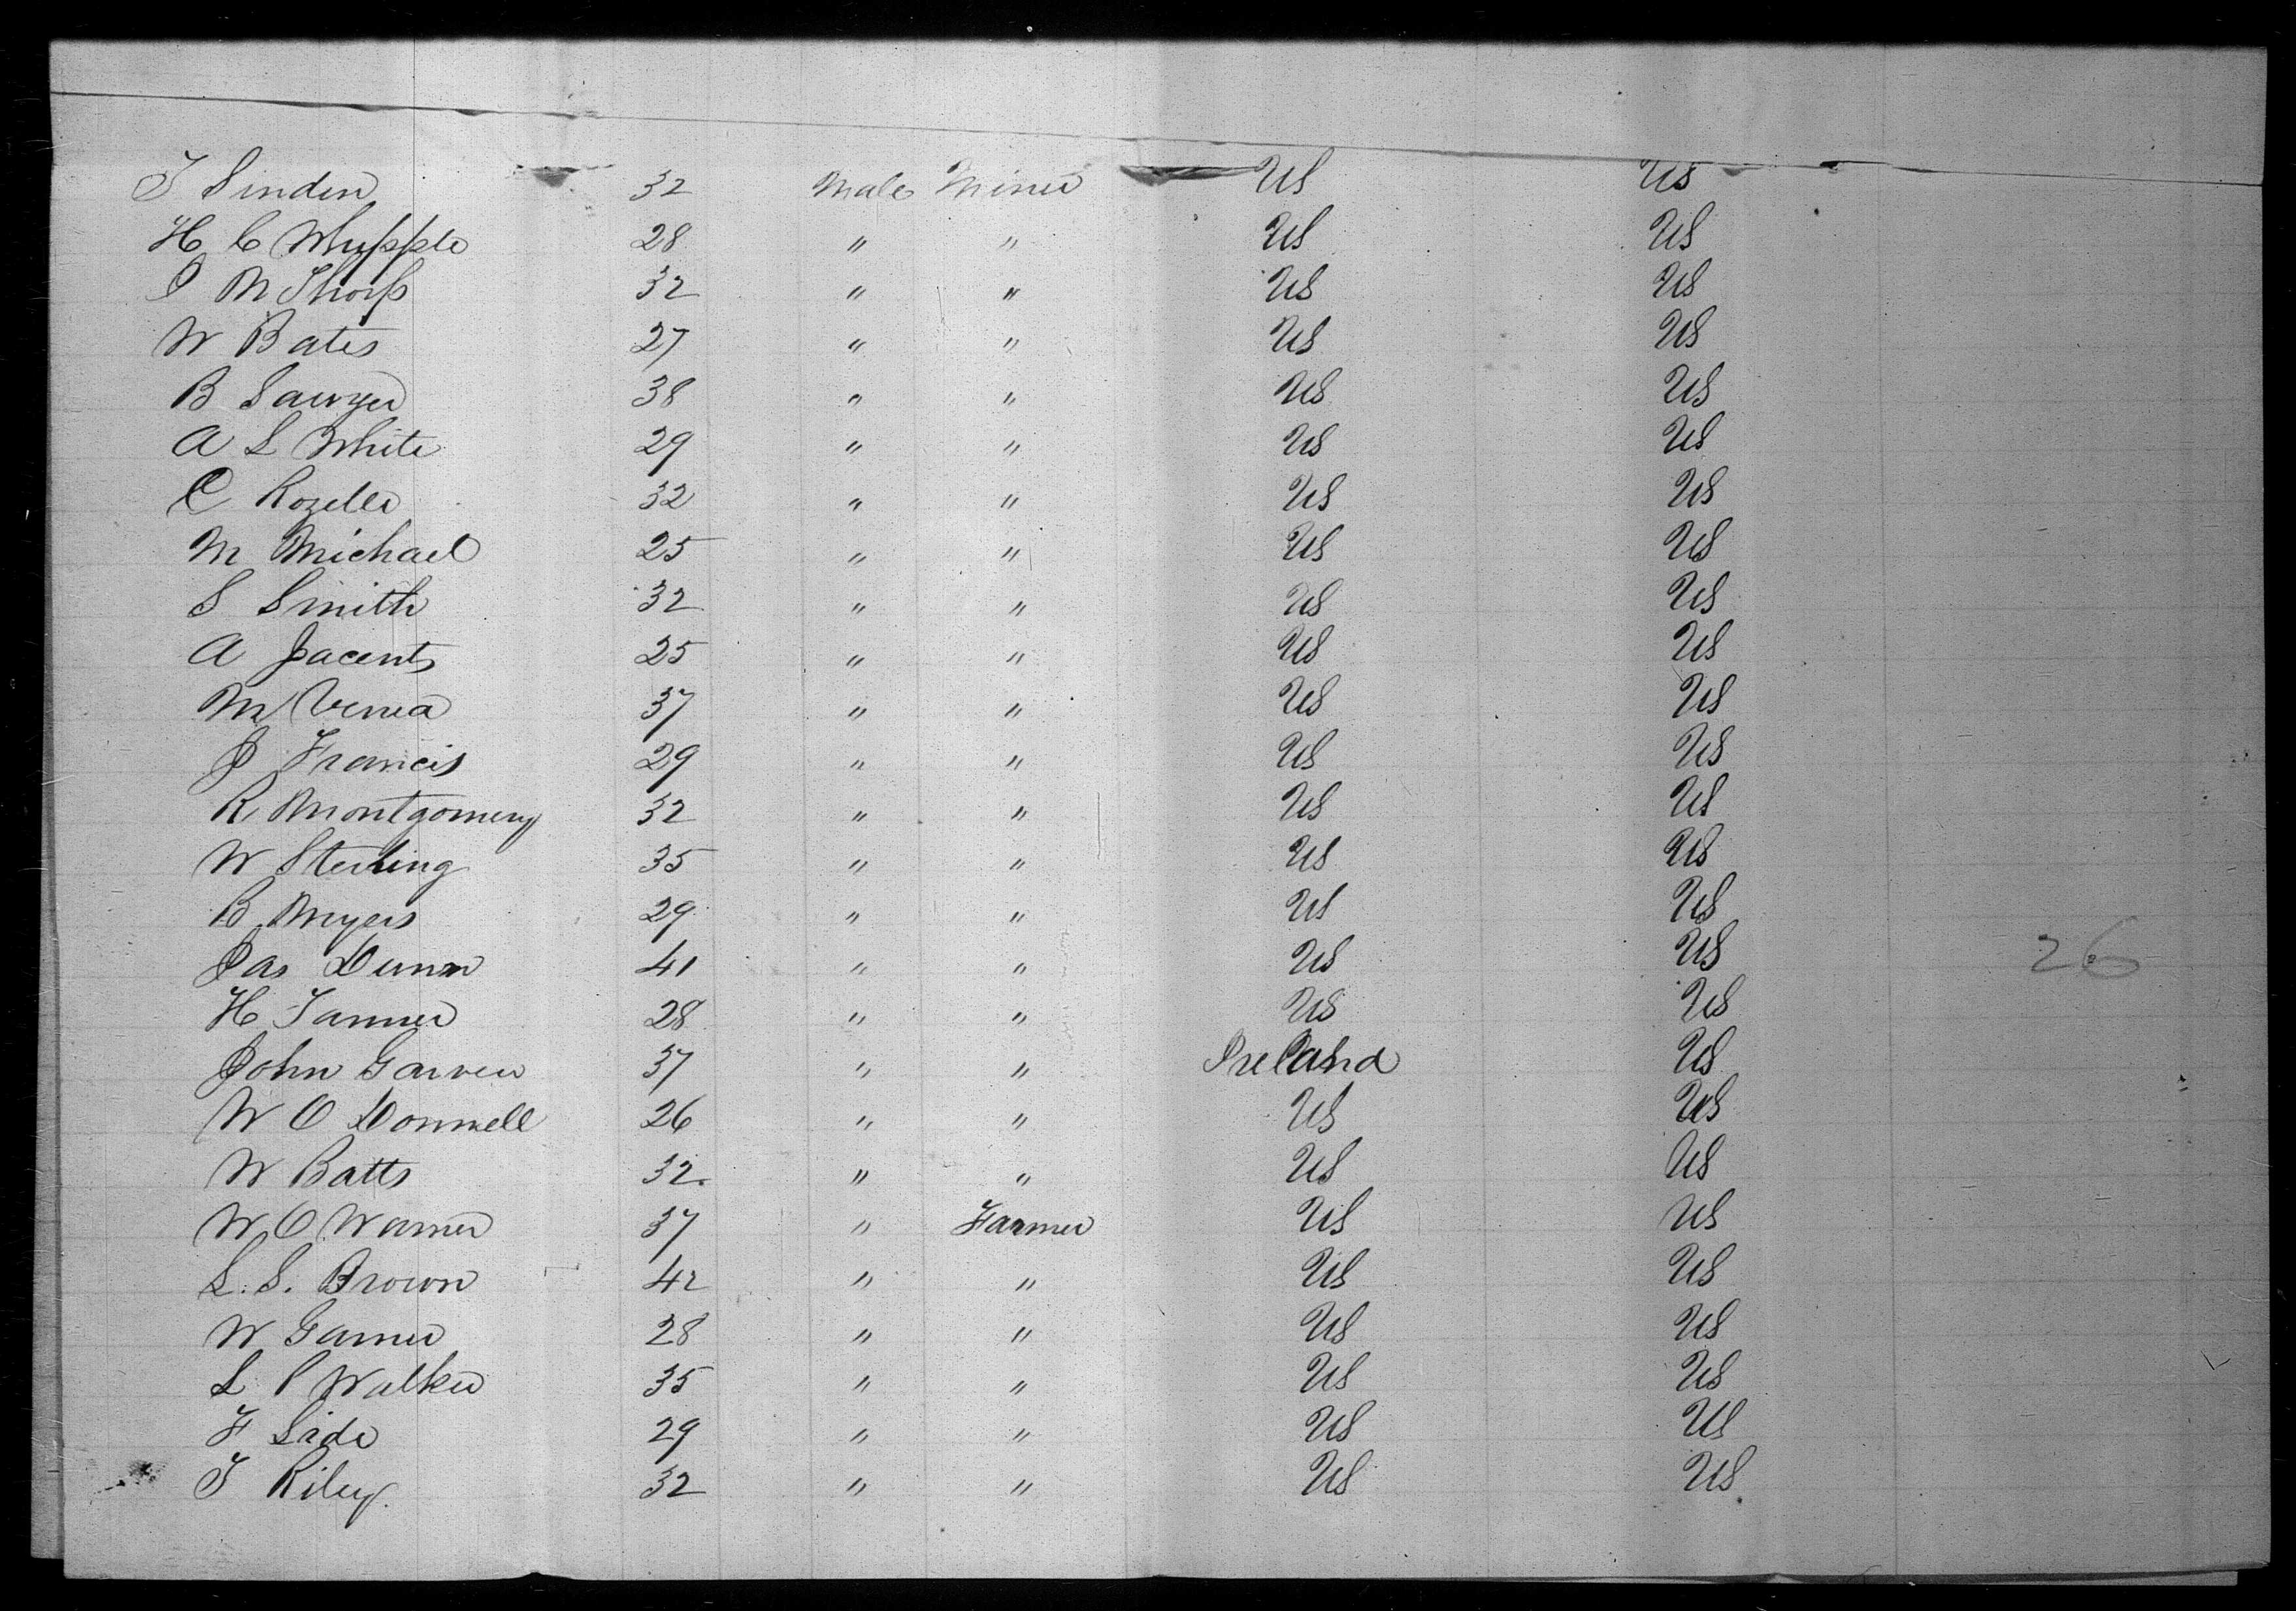 T Linden 32 Male Miner US US
H C Whipple 28 " " US US
J M Thorp 32 " " US US
W Bates 27 " " US US
B Sawyer 38 " " US US
A L White 29 " " US US
C Rozelle 32 " " US US
M Michael 25 " " US US
S Smith 32 " " US US
A Jacents 25 " " US US
M 37 " " US US
J Francis 29 " " US US
R Montgomery 32 " " US US
W Sterling 35 " " US US
B Meyers 29 " " US US
Jas Dunn 41 " " US US 26
H Tanner 28 " " US US
John Garven 37 " " Ireland US
W O Donnell 26 " " US US
W Batts 32 " " US US
W O Warner 37 " Farmer US US
L. S. Brown 42 " " US US
W Garner 28 " " US US
L P Walker 35 " " US US
F 29 " " US US
T Riley 32 " " US US